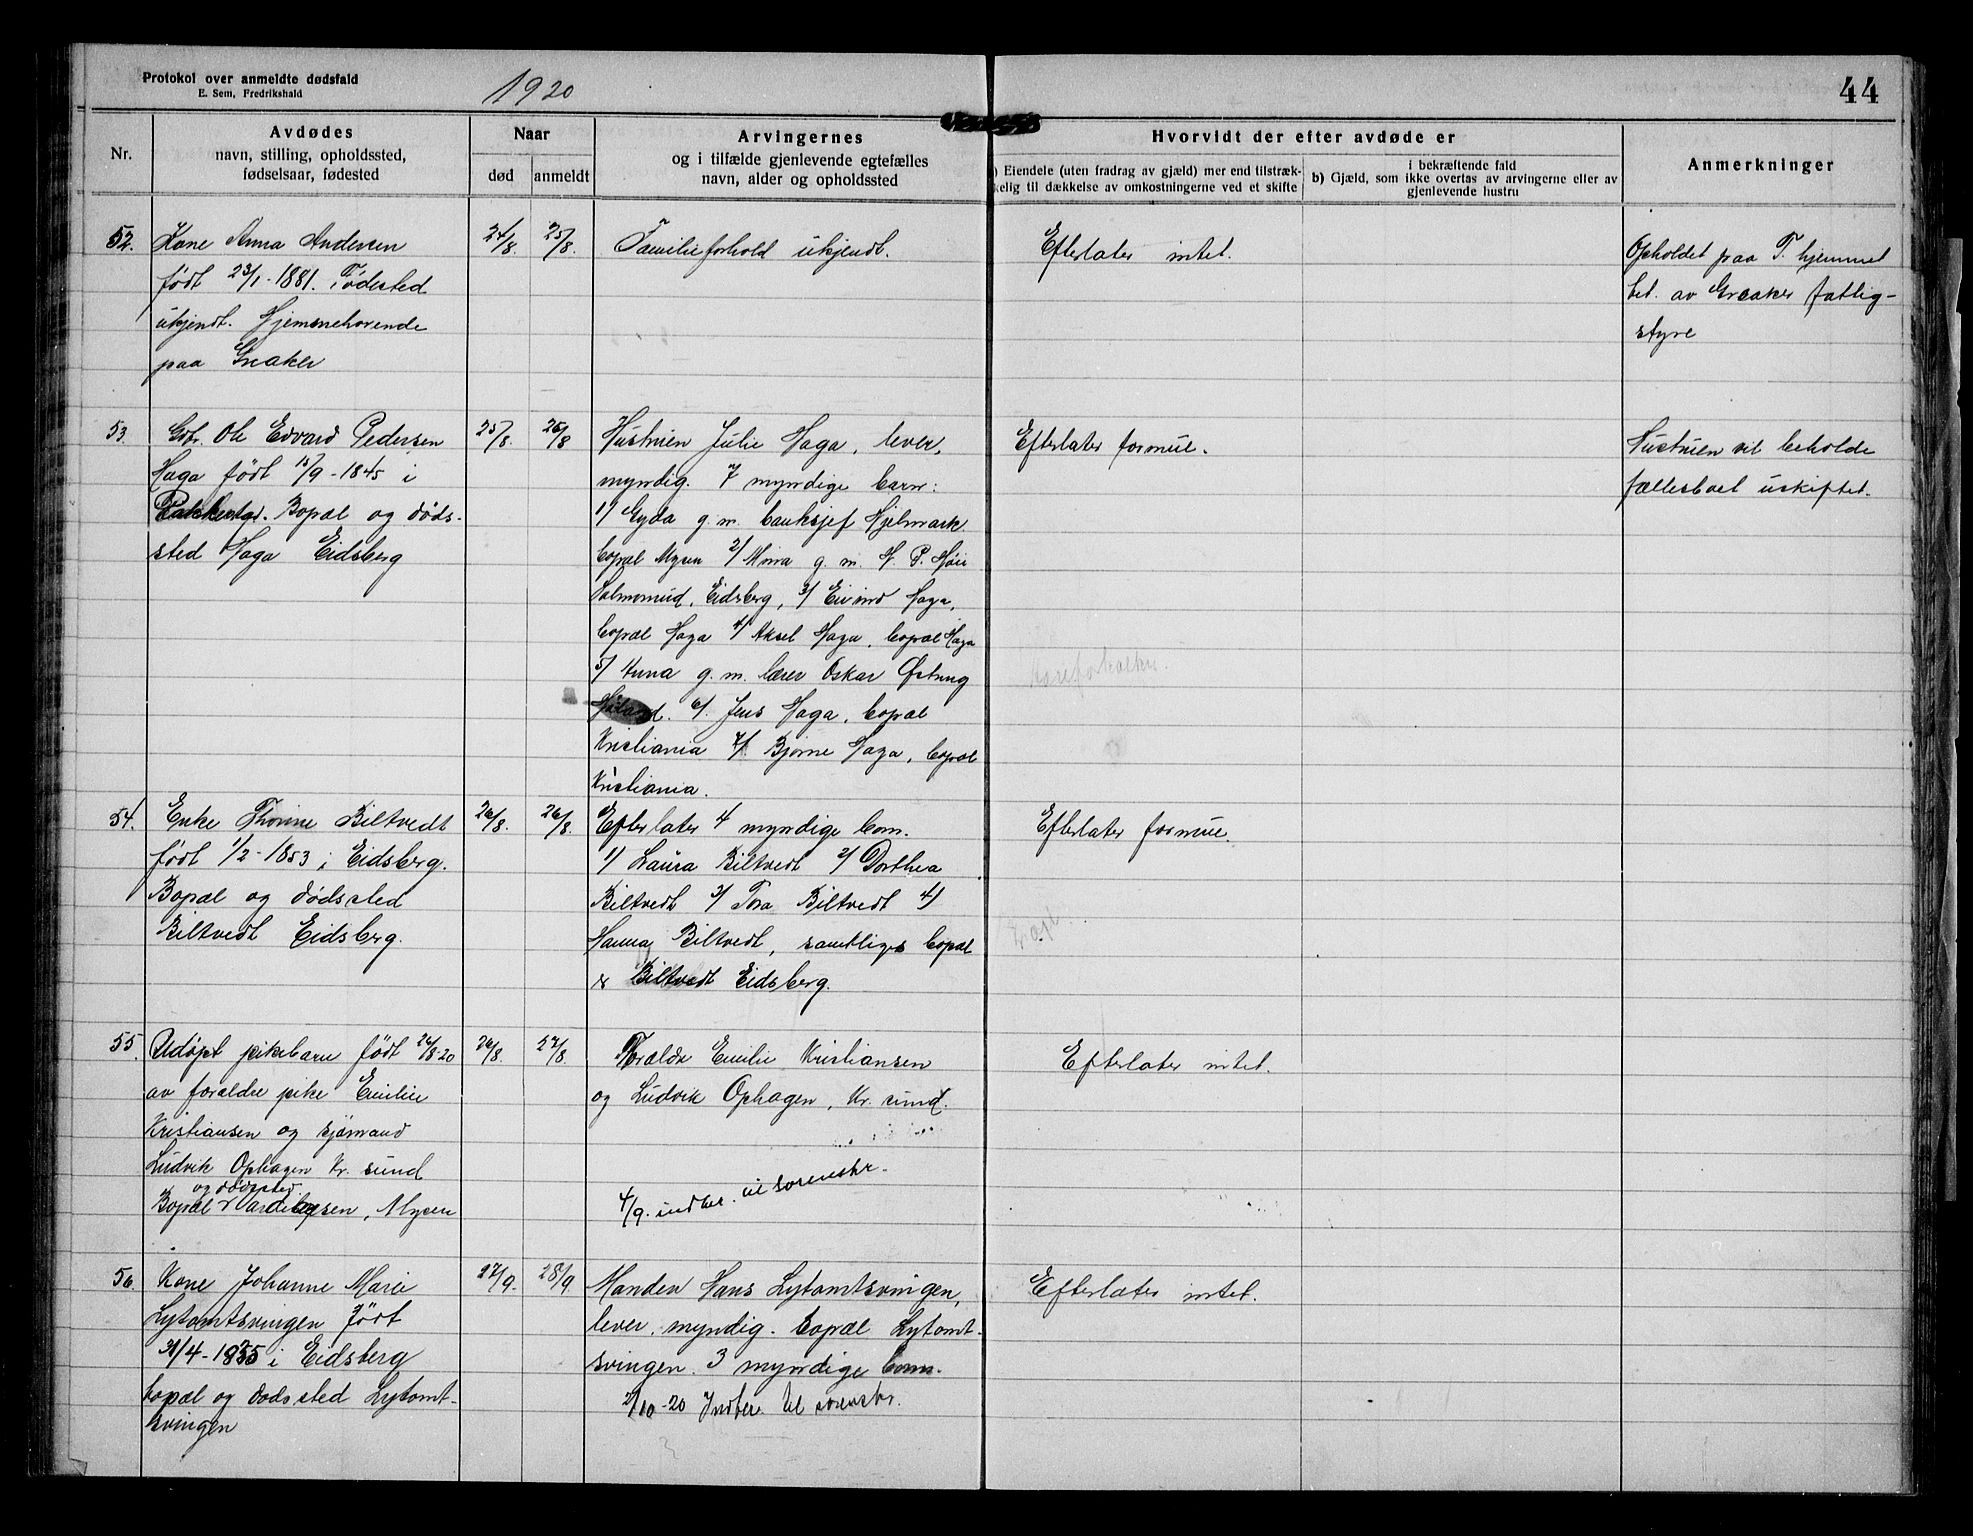 Protokol over anmeldte dødsfald
E. Sem, Fredrikshald
1920
44
Nr.
Avdødes
navn, stilling, opholdssted,
fødselsaar, fødested
Naar
død
anmeldt
Arvingernes
og i tilfælde gjenlevende egtefælles
navn, alder og opholdssted
Hvorvidt der efter avdøde er
) Eiendele (uten fradrag av gjæld) mer end tilstræk-
kelig til dækkelse av omkostningerne ved et skifte
i bekræftende fald
b) Gjæld, som ikke overtas av arvingerne eller av
gjenlevende hustru
Anmerkninger
52.
Kone Anna Andersen
født 23/1-1881. Fødested
ukjendt. Hjemmehørende
paa Greaker
24/8.
25/8.
Familieforhold ukjendt.
Efterlater intet.
Opholdet paa T. hjemmet
bet. av Greaker fattig-
styre
53.
Gbr. Ole Edvard Pedersen
Haga født 15/9-1845 i
Rakkestad. Bopæl og døds-
sted Haga Eidsberg
25/8.
26/8
Hustruen Julie Haga, lever,
myndig. 7 myndige barn:
1/ Gyda g.m. banksjef Hjelmark
bopæl Mysen 2/ Mina g.m. H. P. Høie
Eidsberg, 3/ Eivind Haga,
bopæl Haga 4/ Aksel Haga, bopæl Haga
5/ Anna g.m. lærer Oskar
Høland. 6/. Jens Haga, bopæl
Kristiania 7/. Bjarne Haga, bopæl
Kristiania.
Efterlater formue.
Hustruen vil beholde
fællesboet uskiftet.
54.
Enke Thorine Biltvedt
født 1/2-1853 i Eidsberg.
Bopæl og dødssted
Biltvedt Eidsberg.
26/8.
26/8.
Efterlater 4 myndige barn.
1/ Laura Biltvedt 2/ Dorthea
Biltvedt 3/ Tora Biltvedt 4/
Hanna Biltvedt, samtlige bopæl
Biltvedt Eidsberg.
Efterlater formue.
55.
Udøpt pikebarn født 26/8-20
av forældre pike Emilie
Kristiansen og sjømand
Ludvik Ophagen Kr. sund
og dødssted
Bopæl Mysen
26/8.
27/8.
Forældre Emilie Kristiansen
og Ludvik Ophagen, Kr. sund.
4/9. indber. til sorenskr.
Efterlater intet.
56.
Kone Johanne Marie
Lytomtsvingen født
/4-1855 i Eidsberg
bopæl og dødssted Lytomt-
svingen
27/9.
28/9
Manden Hans Lytomtsvingen,
lever, myndig. bopæl Lytomt-
svingen. 3 myndige barn.
2/10-20 Indber. til sorenskr.
Efterlater intet.